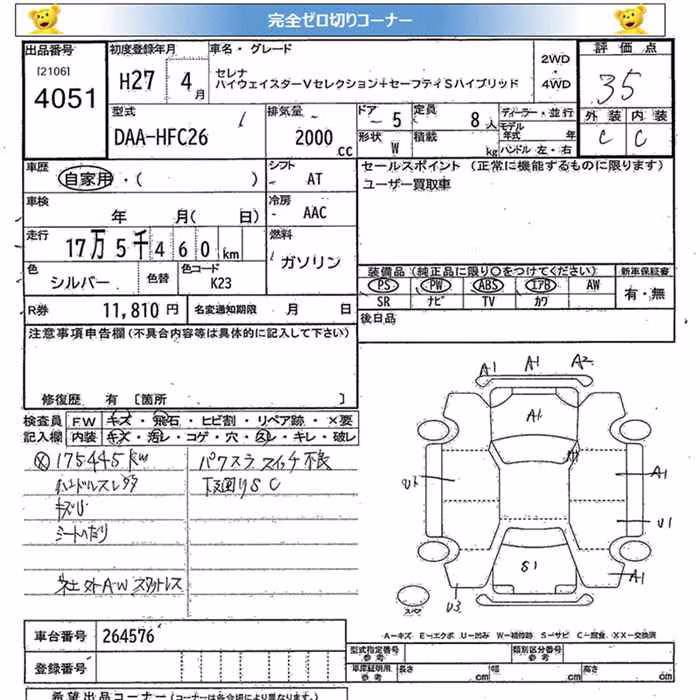 完全ゼロ切りコーナー
出品番号 [2106] 4051
初度登録年月 H27 4月
車名・グレード
セレナ
ハイウェイスターVセレクション+セーフティSハイブリッド
2WD・4WD
評価点 3.5
外装 内装
C C
型式 DAA-HFC26
排気量 2000 cc
ドア 5
定員 8人
形状 W
積載 kg
ディーラー・並行
モデル年式 年
ハンドル 左・右
車歴 自家用・( )
シフト AT
車検 年 月( 日)
冷房 AAC
走行 17万5千460km
燃料 ガソリン
色 シルバー 色替 色コード K23
R券 11,810円
名変通知期限 月 日
セールスポイント (正常に機能するものに限ります)
ユーザー買取車
装備品 (純正品に限り○をつけてください)
新車保証書
PS PW ABS エアB AW
有・無
SR ナビ TV カワ
後日品
注意事項申告欄(不具合内容等は具体的に記入して下さい)
修復歴 有 [箇所 ]
検査員記入欄
FW キズ・飛石・ヒビ割・リペア跡・×要
内装 キズ・汚レ・コゲ・穴・スレ・キレ・破レ
175445km
パワスラスイッチ不良
ハンドルスレ
下廻りSC
キズ
シートへたり
社外A・W スタットレス
A1 A1 A2
A1
A1
U1
S1
A1
U3
スペア
A−キズ E−エクボ U−凹み W−補修跡 S−サビ C−腐食、XX−交換済
車台番号 264576
登録番号
型式指定番号 参考
類別区分番号 参考
車庫証明用 参考
長さ cm 幅 cm 高さ cm
希望出品コーナー(コーナーは各会場により異なります。)